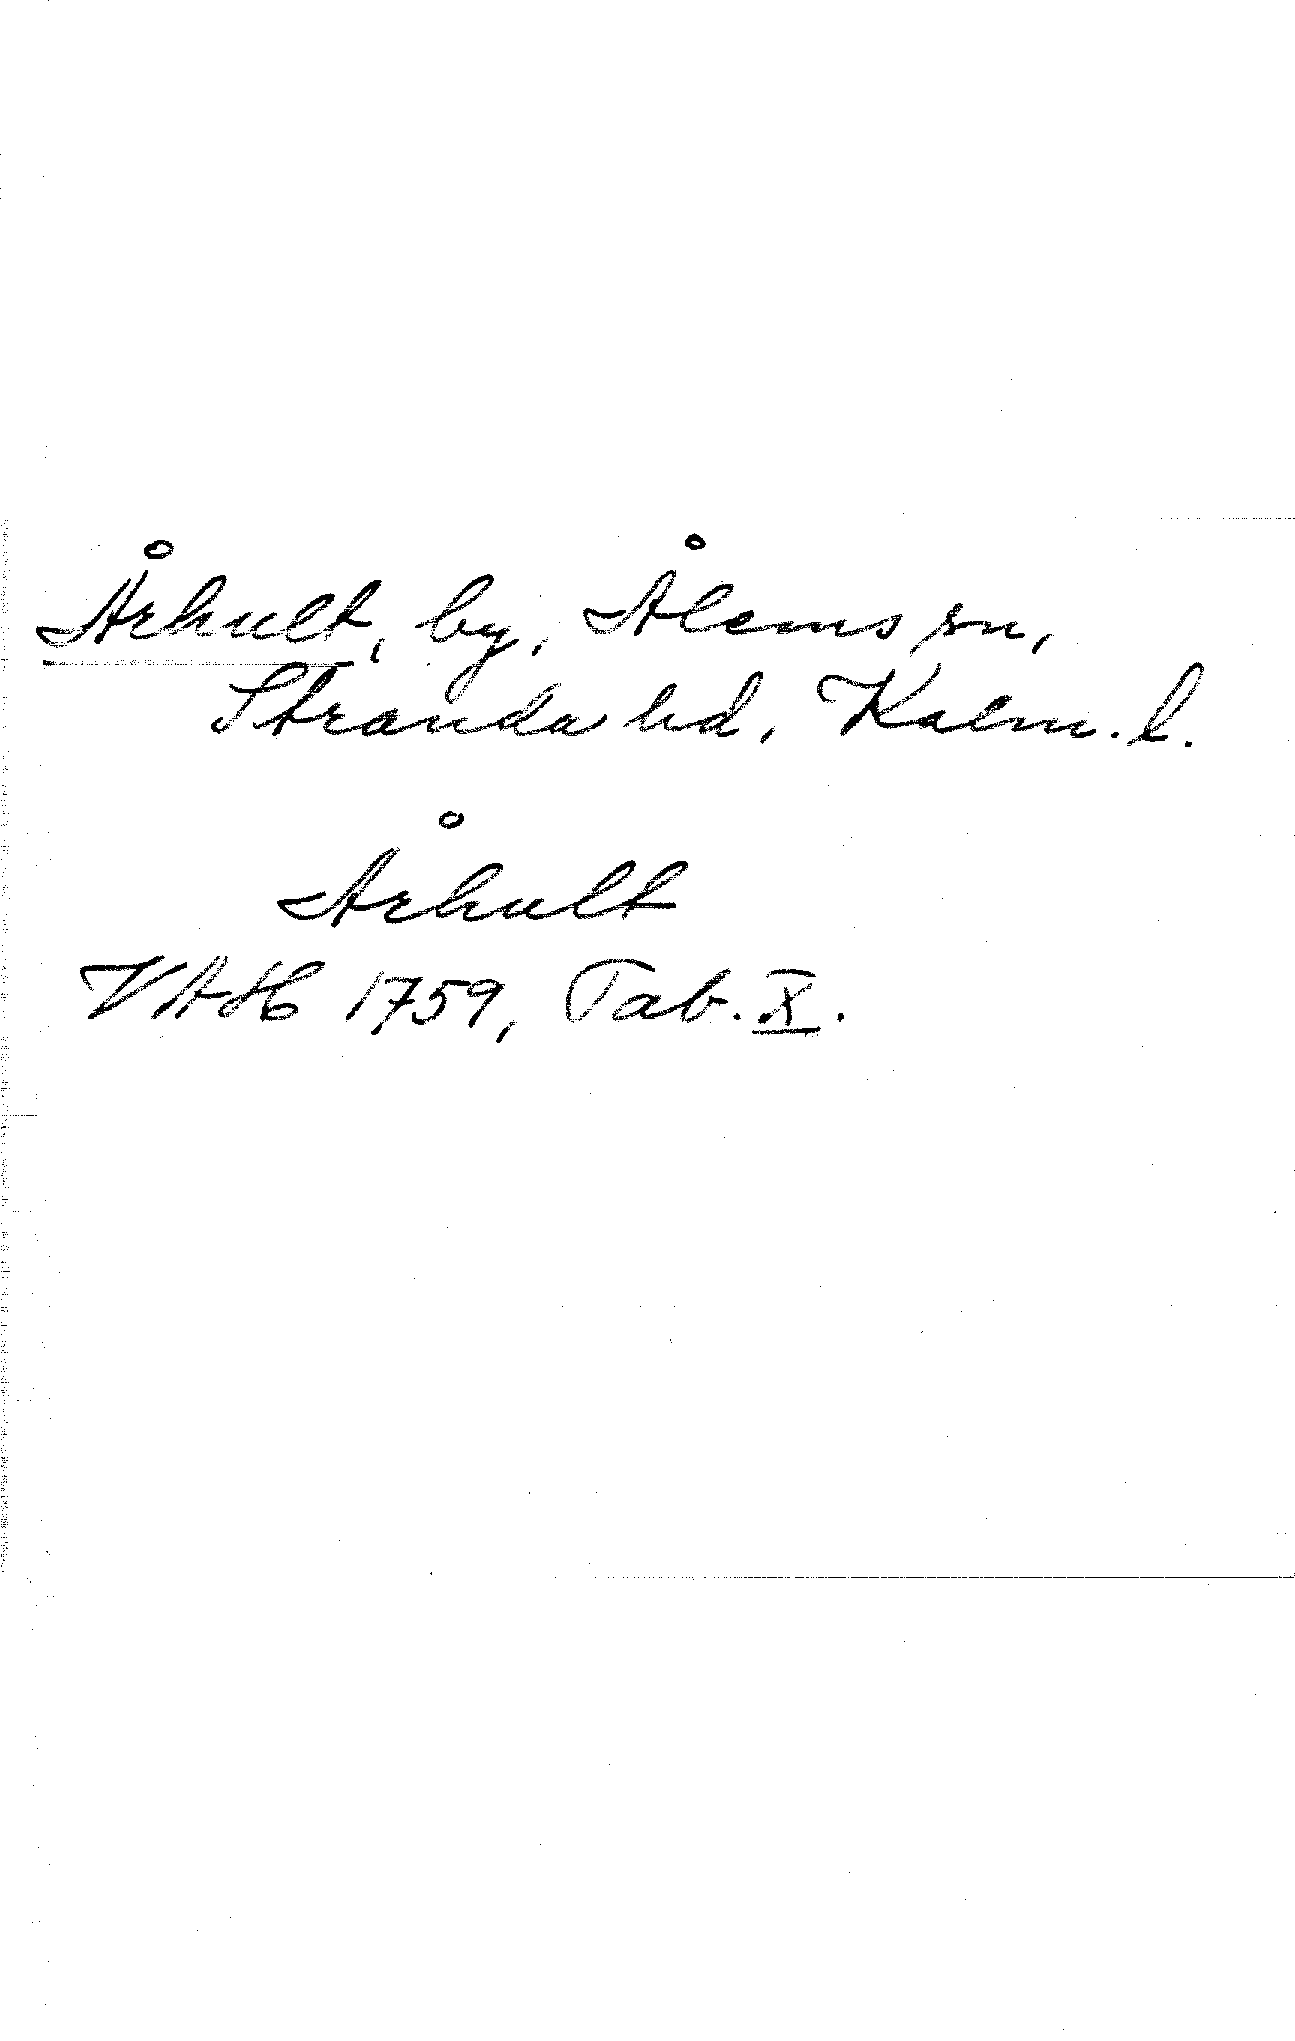 Århult, by, Ålems sn,
Stranda hd, Kalm. l.
Århult
VAH 1759, Tab. X.